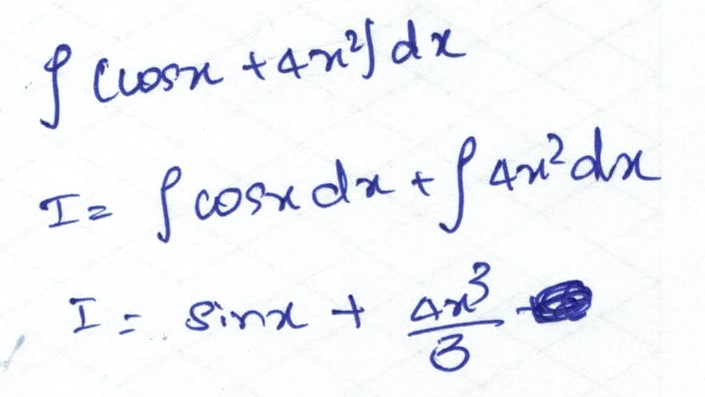 ∫ (cosx + 4x²) dx
I = ∫ cosx dx + ∫ 4x² dx
I = sinx + 4x³/3